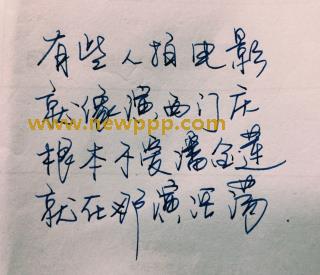 有些人拍电影
就像演西门庆
www.newppp.com
根本不爱潘金莲
就在那演淫荡.